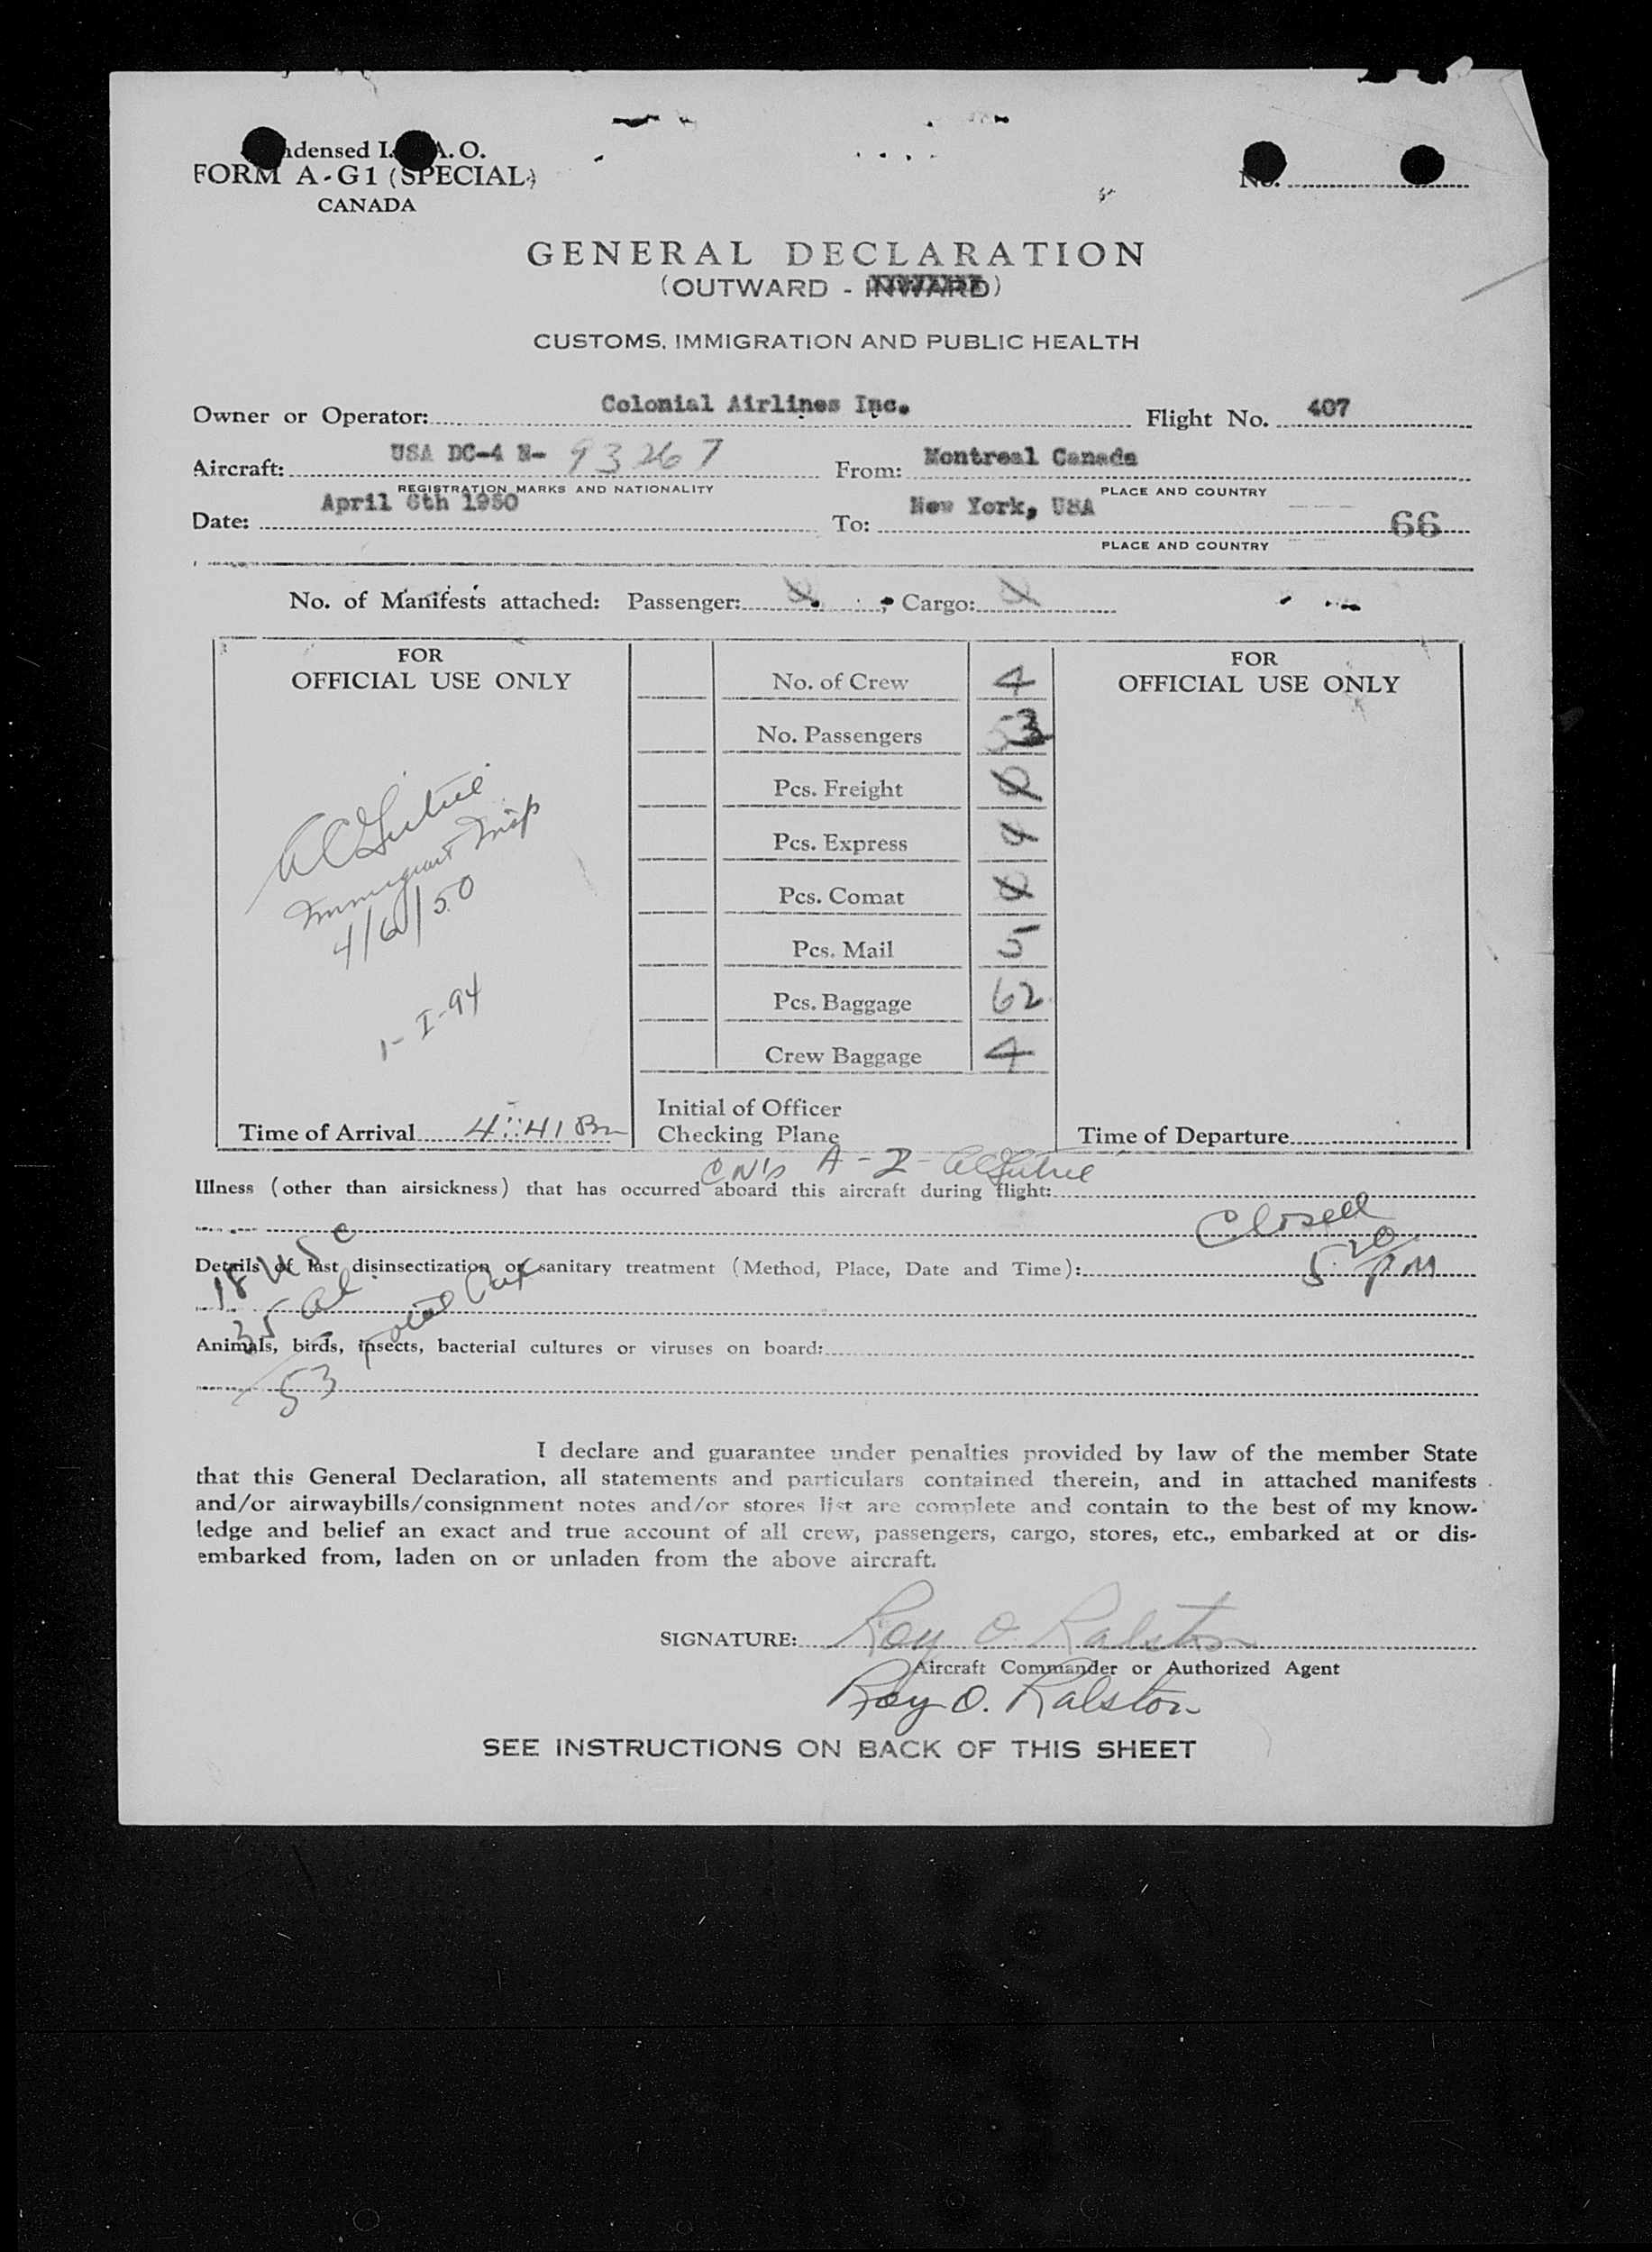 ndensed I. A. O.
FORM A-G1 (SPECIAL)
CANADA
No.
GENERAL DECLARATION
(OUTWARD - INWARD)
CUSTOMS, IMMIGRATION AND PUBLIC HEALTH
Owner or Operator: Colonial Airlines Inc. Flight No. 407
Aircraft: USA DC-4 N- 93267 From: Montreal Canada
REGISTRATION MARKS AND NATIONALITY PLACE AND COUNTRY
Date: April 6th 1950 To: New York, USA 66
PLACE AND COUNTRY
No. of Manifests attached: Passenger: ; Cargo:
FOR
OFFICIAL USE ONLY
4/6/50
1-I-94
Time of Arrival 4:41 Pm
No. of Crew 4
No. Passengers 53
Pcs. Freight
Pcs. Express
Pcs. Comat
Pcs. Mail 5
Pcs. Baggage 62
Crew Baggage 4
Initial of Officer
Checking Plane
FOR
OFFICIAL USE ONLY
Time of Departure
Illness (other than airsickness) that has occurred aboard this aircraft during flight:
Closed
5 20/PM
Details of last disinsectization or sanitary treatment (Method, Place, Date and Time):
18 USC
35 al
Animals, birds, insects, bacterial cultures or viruses on board:
53
I declare and guarantee under penalties provided by law of the member State
that this General Declaration, all statements and particulars contained therein, and in attached manifests
and/or airwaybills/consignment notes and/or stores list are complete and contain to the best of my know-
ledge and belief an exact and true account of all crew, passengers, cargo, stores, etc., embarked at or dis-
embarked from, laden on or unladen from the above aircraft.
SIGNATURE: Roy O Ralston
Aircraft Commander or Authorized Agent
Roy O. Ralston
SEE INSTRUCTIONS ON BACK OF THIS SHEET